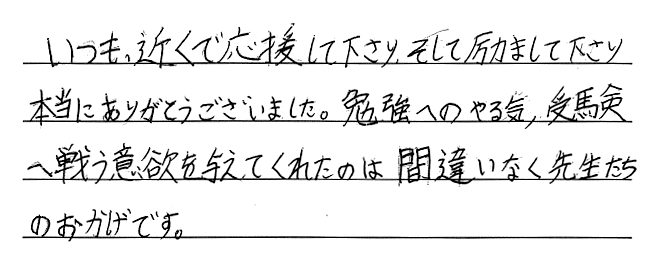 いつも、近くで応援して下さり、そして励まして下さり
本当にありがとうございました。勉強へのやる気、受験
へ戦う意欲を与えてくれたのは間違いなく先生たち
のおかげです。